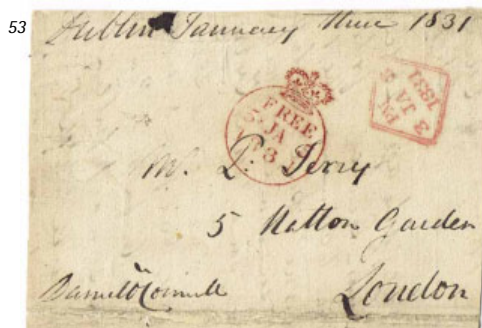 53
Dublin January three 1831
FREE
JA
1831
1831
JA
PM
Mr. P. Terry
5 Hatton Garden
London
Daniel O'Connell